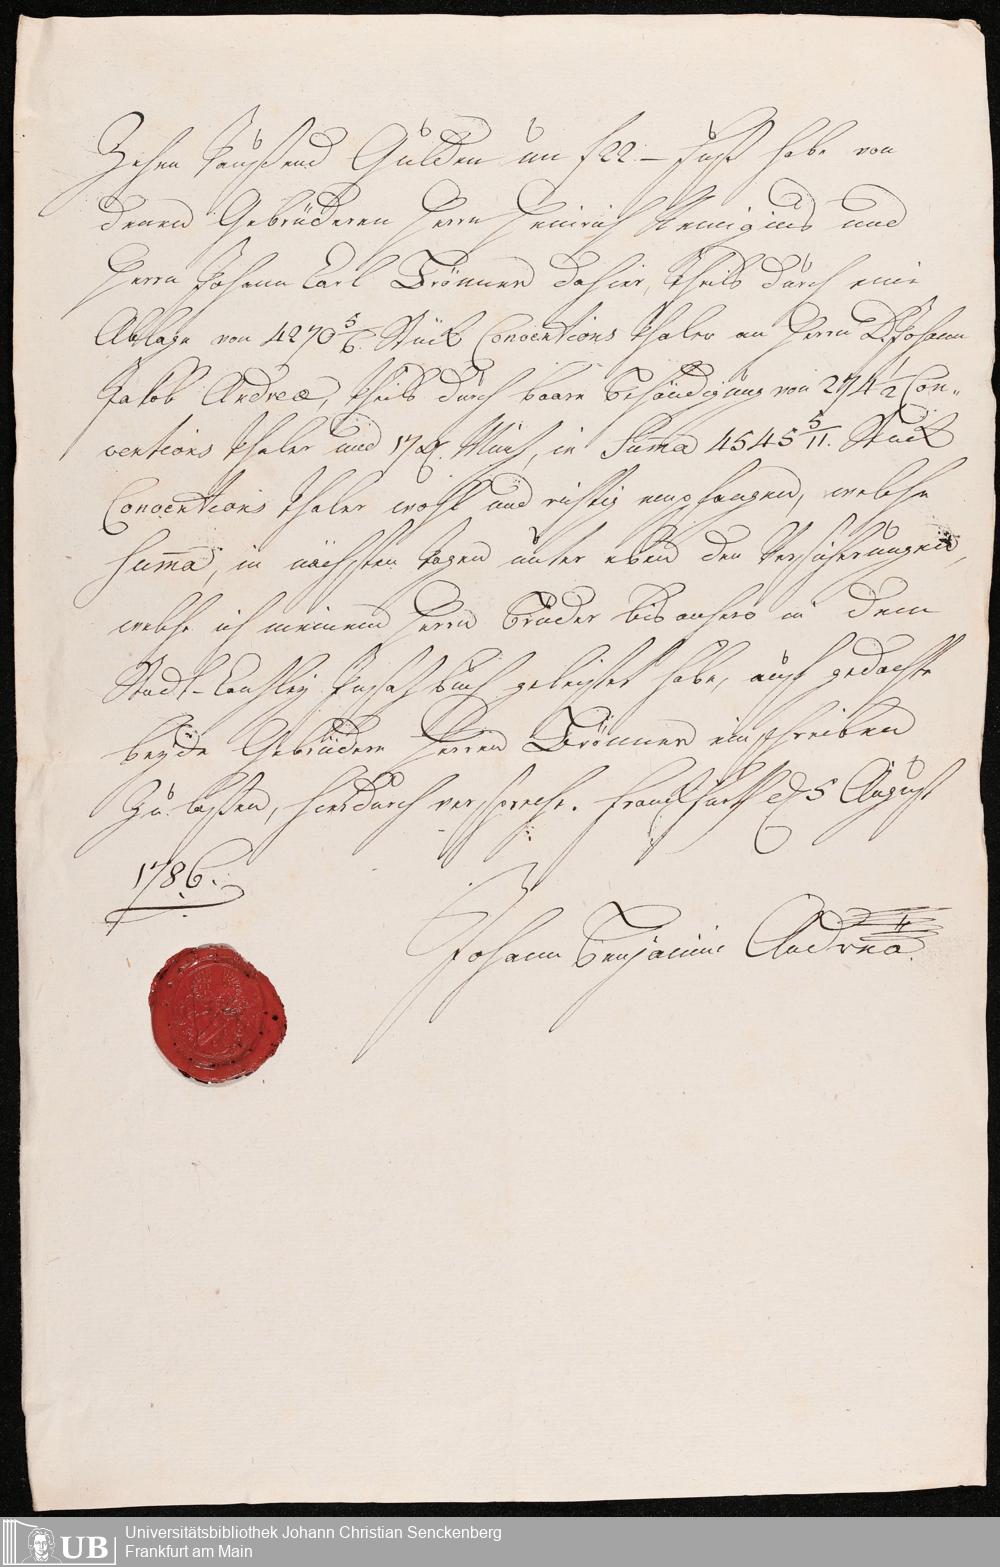 Zehen Tausend Gulden im f 22 – Fuß habe von
denen Gebrüderen Herrn Heinrich Remigius und
Herrn Johann Carl Brönner dahier, theils durch eine
Ablage von 4270 5/6 Stück Conventions Thaler an Herrn D. Johann
Jakob Andreae, theils durch baare Behändigung von 274 1/2 Con-
ventions Thaler und 17 Münz, in Summa 4545 5/11. Stück
Conventions Thaler wohl und richtig empfangen, welche
Summa, in nächsten Tagen unter eben den Versicherungen,
welche ich meinem Herrn Bruder bis anhero in dem
Stadt-Canzley Insaz Buch geleistet habe, auf gedachte
beyde Gebrüdere Herren Brönner einschreiben
zu laßen, hierdurch verspreche. Franckfurth d. 5 August
1786.
Johann Benjamin Andreä.
UB
Universitätsbibliothek Johann Christian Senckenberg
Frankfurt am Main